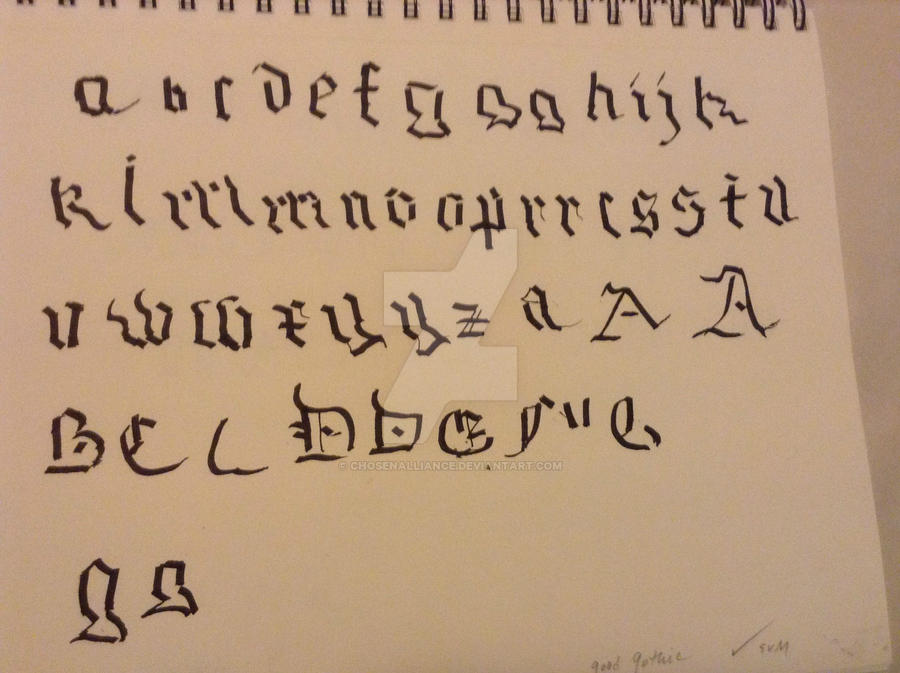 a b c d e f g g g h i j k
k l m m n o o p r r c s s t u
v w w x y y z a A A
B C C D D E
g g
© CHOSENALLIANCE.DEVIANTART.COM
good gothic ✓